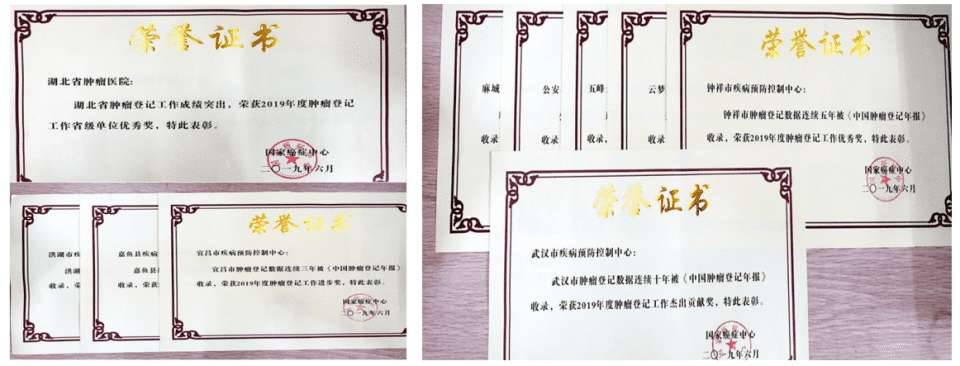 荣誉证书
湖北省肿瘤医院:
湖北省肿瘤登记工作成绩突出，荣获2019年度肿瘤登记
工作省级单位优秀奖，特此表彰。
国家癌症中心
二〇一九年六月
洪湖市疾病
洪湖
收录，荣获
嘉鱼县疾病
嘉鱼
收录，荣获
荣誉证书
宜昌市疾病预防控制中心:
宜昌市肿瘤登记数据连续三年被《中国肿瘤登记年报》
收录，荣获2019年度肿瘤登记工作进步奖，特此表彰。
国家癌症中心
二〇一九年六月
麻城
收录，
公安
收录，
五峰
收录，
云梦
收录，
荣誉证书
钟祥市疾病预防控制中心:
钟祥市肿瘤登记数据连续五年被《中国肿瘤登记年报》
收录，荣获2019年度肿瘤登记工作优秀奖，特此表彰。
二〇一九年六月
荣誉证书
武汉市疾病预防控制中心:
武汉市肿瘤登记数据连续十年被《中国肿瘤登记年报》
收录，荣获2019年度肿瘤登记工作杰出贡献奖，特此表彰。
国家癌症中心
二〇一九年六月